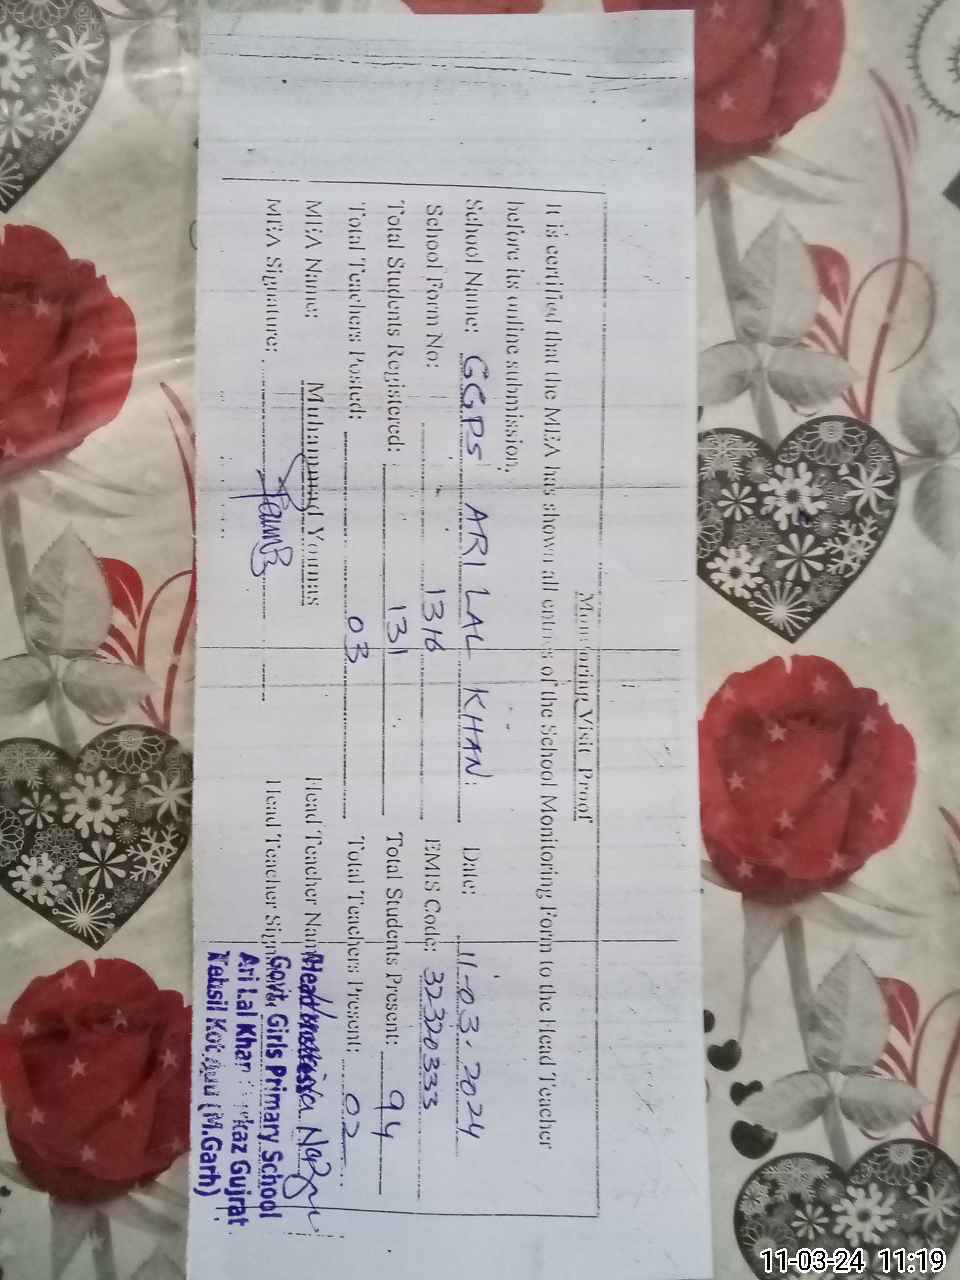 Monitoring Visit Proof
It is certified that the MEA has shown all entries of the School Monitoring Form to the Head Teacher
before its online submission.
School Name: GGPS ARI LAL KHAN Date: 11-03-2024
School Form No: 1316 EMIS Code: 32320333
Total Students Registered: 131 Total Students Present: 94
Total Teachers Posted: 03 Total Teachers Present: 02
MEA Name: Muhammad Younas Head Teacher Name:
MEA Signature: Head Teacher
Headmistress
Govt. Girls Primary School
Ari Lal Khan Markaz Gujrat
Tehsil Kot Addu (M.Garh)
11-03-24 11:19